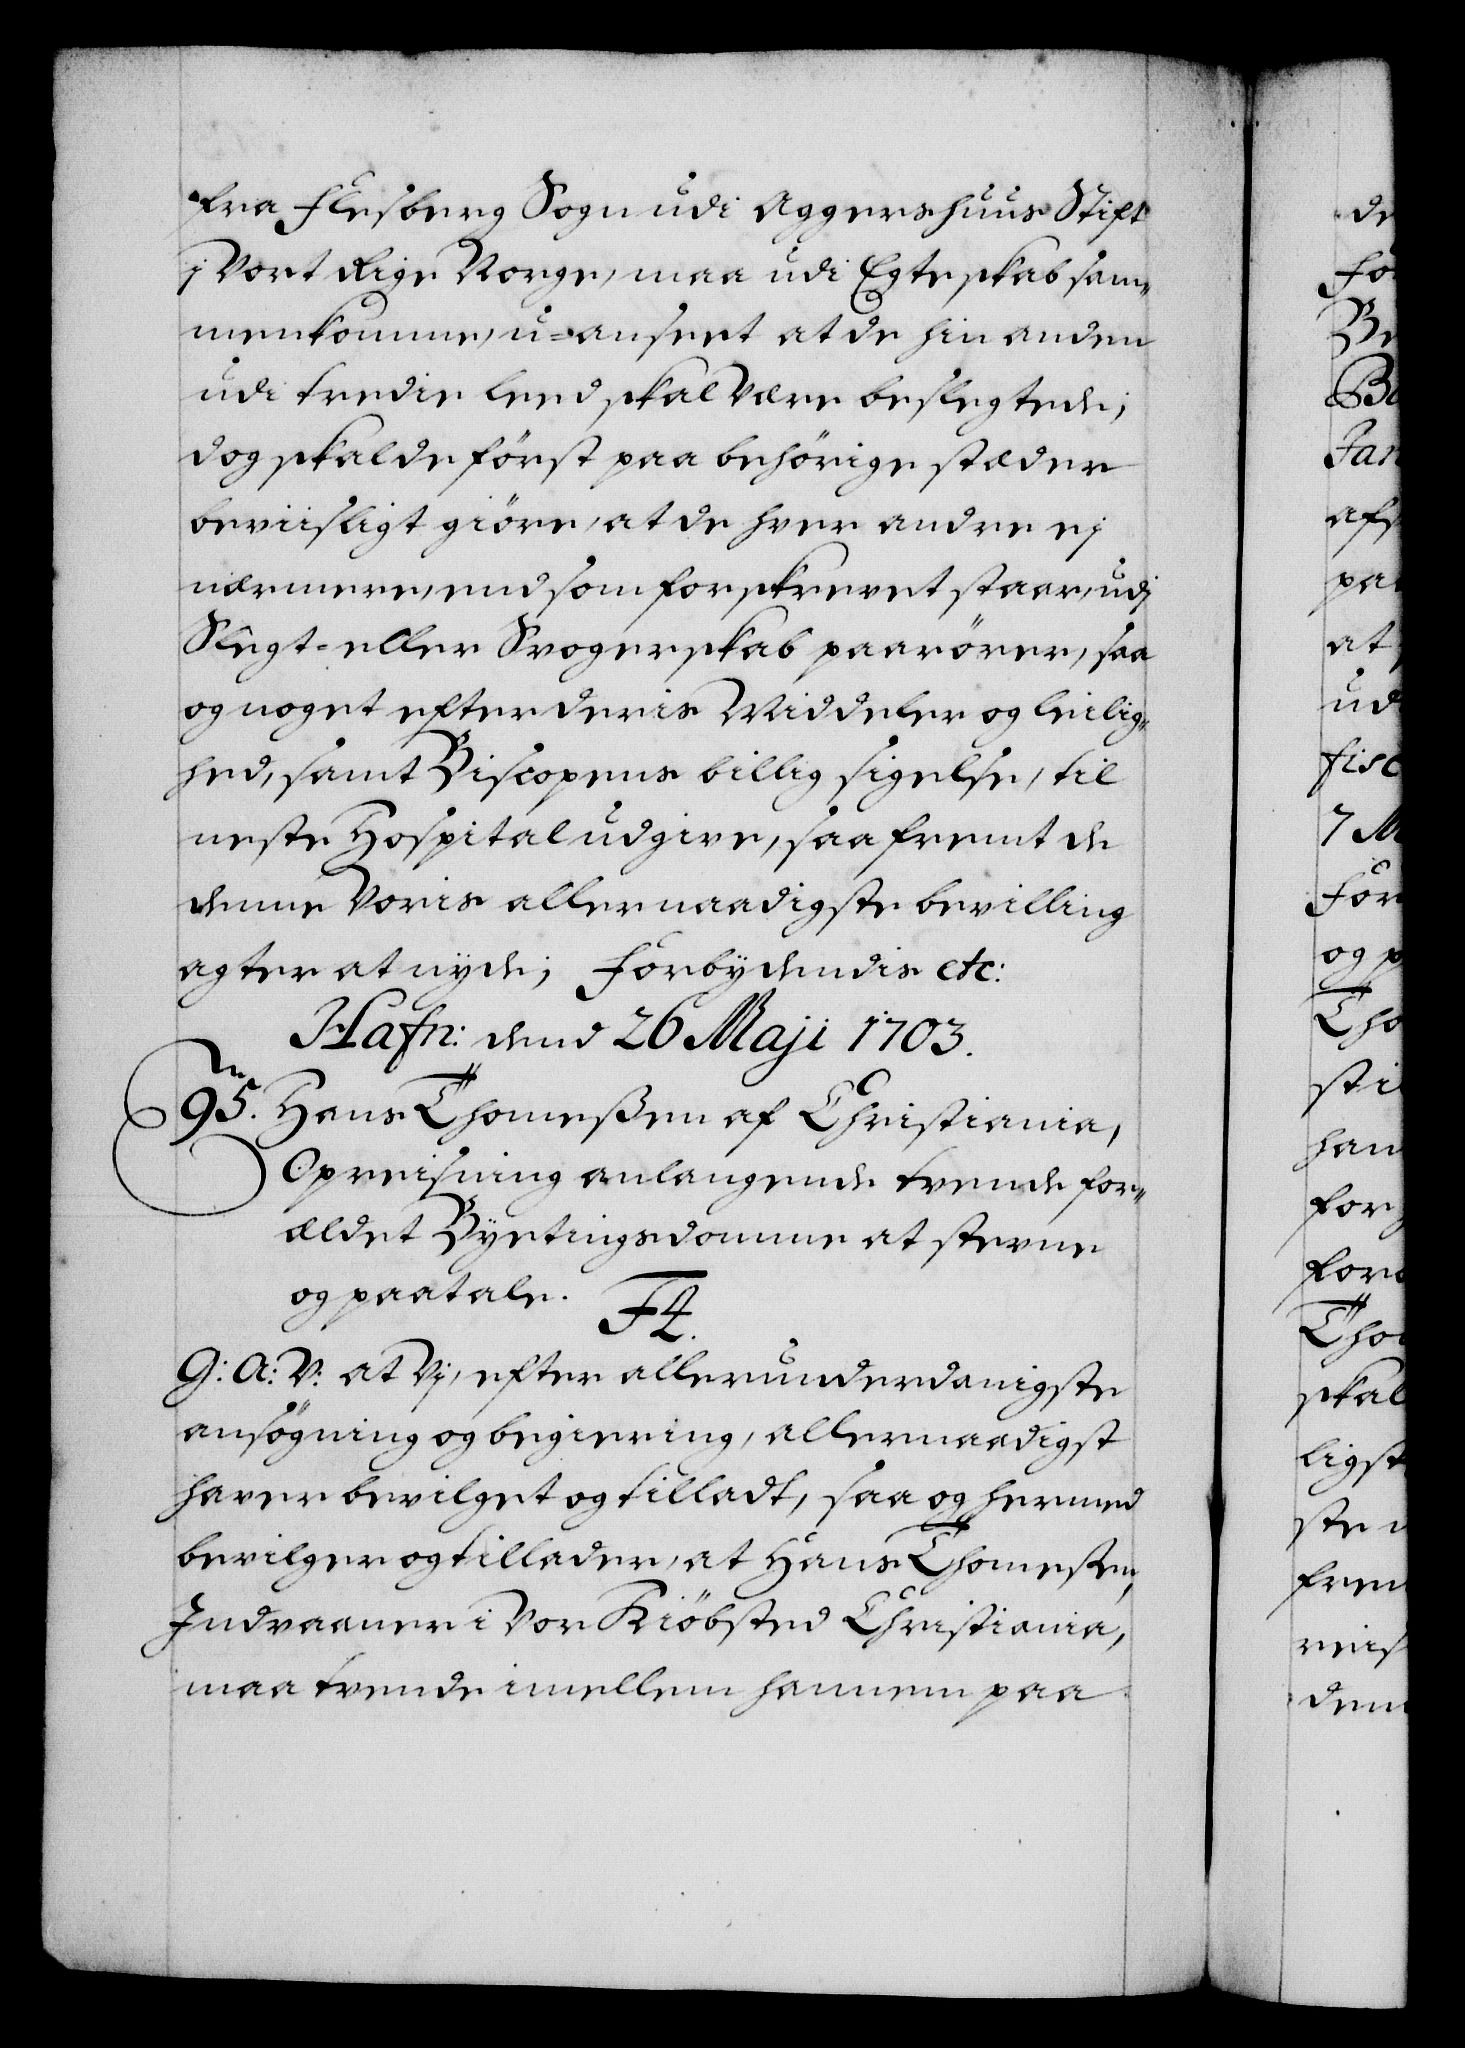 fra Flesberg Sogn udi Aggershuus Stift
j Vort Rige Norge, maa udi Egteskab sam„
menkomme, u=anseet at de hin anden
udi tredie Leed skal være beslegtede;
dog skal de först paa behörige stæder
beviisligt giöre, at de hver andre ej
nærmere, end som forskrevet staar, udj
Slegt- eller Svogerskab paarörer, saa
og noget efter deris Middeler og leilig„
hed, samt Biscopens billig sigelse, til
neste Hospital udgive, saafremt de
denne Voris allernaadigste bevilling
agter at nyde; Forbydendis etc:
Hafn: dend 26 Maji 1703.
95. Hans Thomeßen af Christiania,
Opreisning anlangende trende for„
ældet Byetingsdomme at stevne
og paatale.
G: A: V: at Vj, efter allerunderdanigste
ansögning og begiering, allernaadigst
haver bevilget og tilladt, saa og hermed
bevilger og tillader, at Hans Thomeßen,
Indvaaner i Vor Kiöbsted Christiania,
maa trende imellem hannem paa
de
For
Be
Jan
paa
at
ud
fisc
7 M
For
og p
Tho
sti
han
for
Tho
skal
ligst
ste
frem
reis